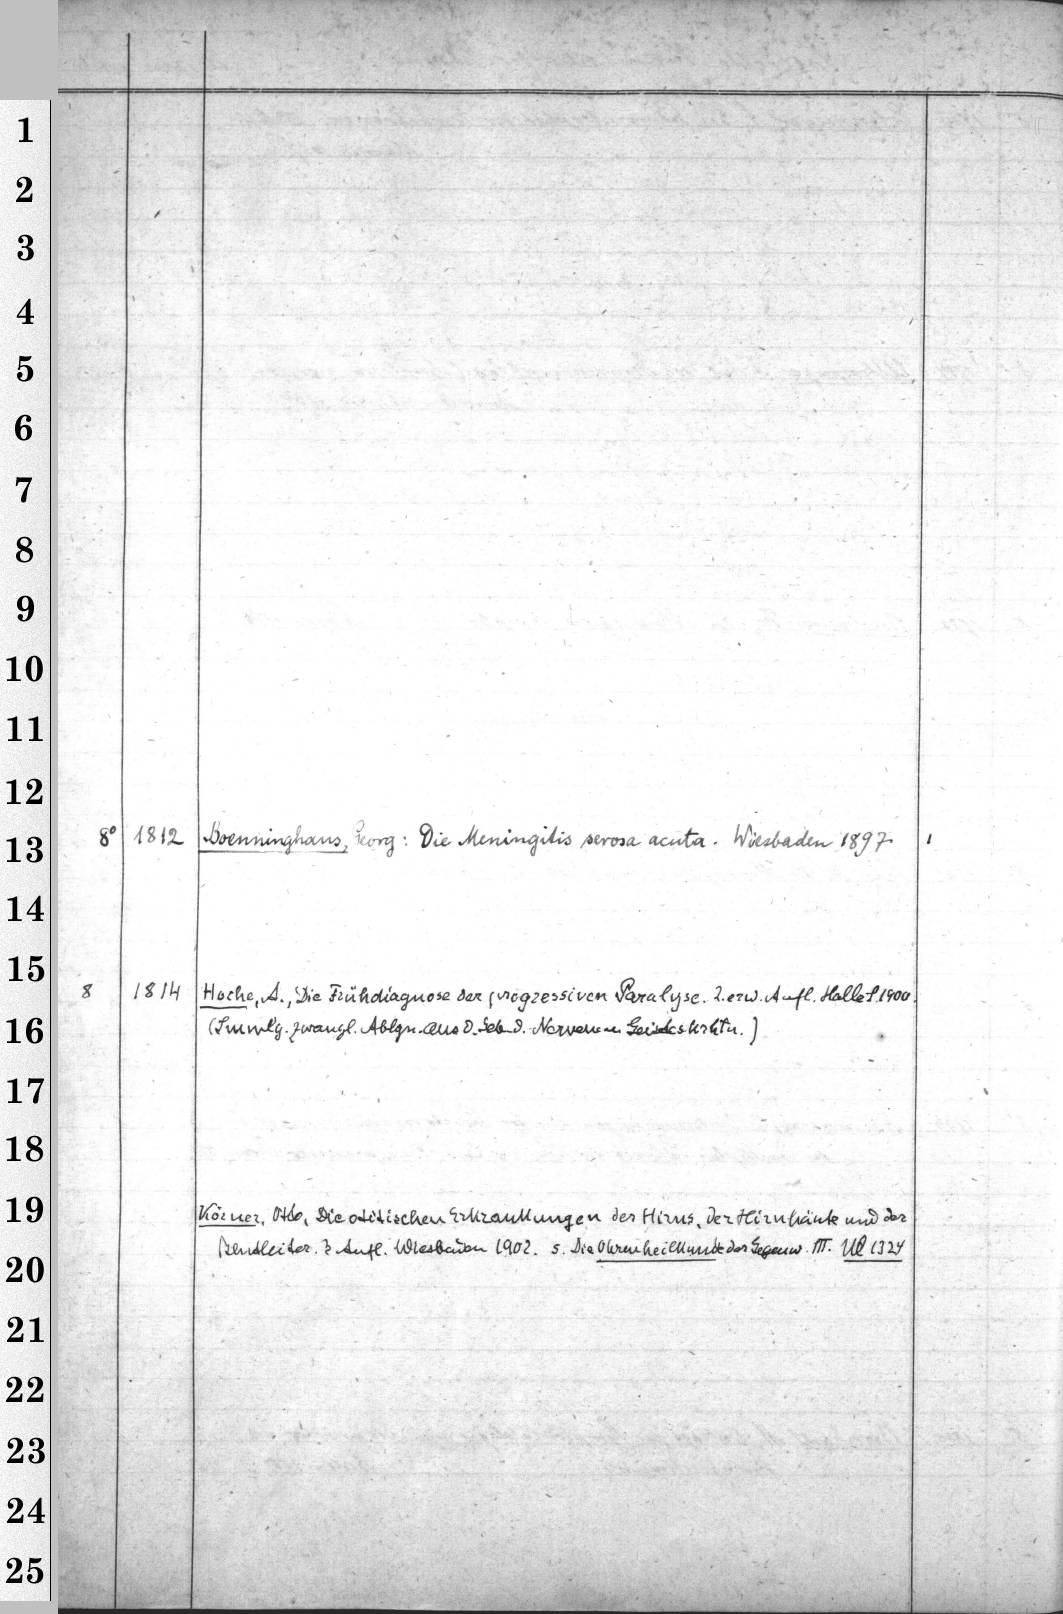 1
2
3
4
5
6
7
8
9
10
11
12
13
14
15
16
17
18
19
20
21
22
23
24
25
8° 1812 Boenninghaus, Georg: Die Meningitis serosa acuta. Wiesbaden 1897. 1
8 1814 Hoche, A., Die Frühdiagnose der progressiven Paralyse. 2. erw. Aufl. Halle S. 1900.
(Smmlg. zwangl. Ablgn. aus d. Geb. d. Nerven- u. Geisteskrktn.)
Körner, Otto, Die otitischen Erkrankungen des Hirns, der Hirnhäute und der
Blutleiter. 3. Aufl. Wiesbaden 1902. s. Die Ohrenheilkunde der Gegenw. III. Ul 1324